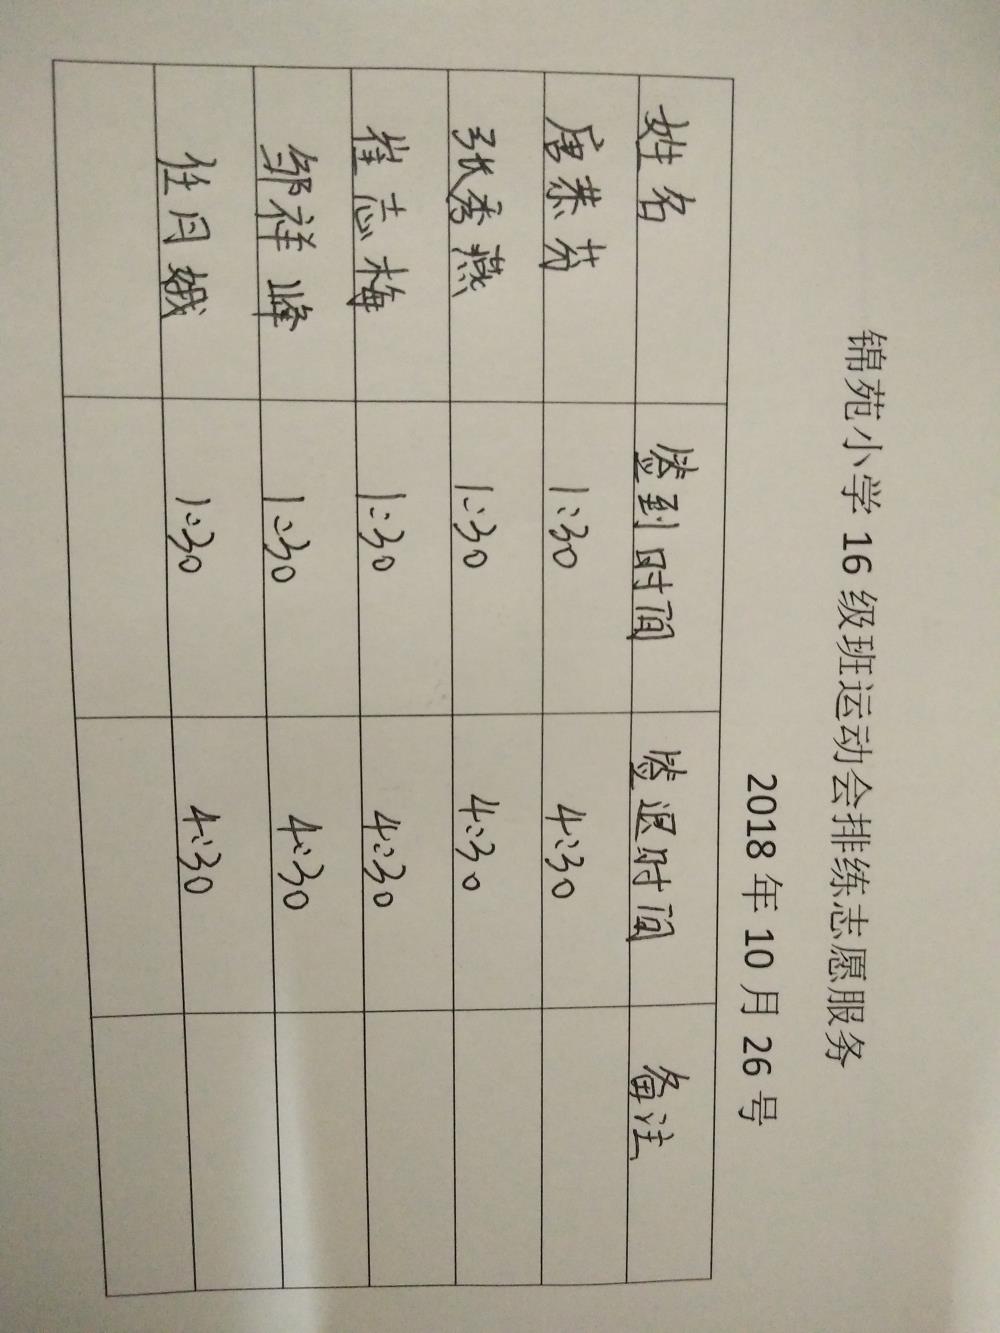 锦苑小学 16 级班运动会排练志愿服务
2018 年 10 月 26 号
姓名 签到时间 签退时间 备注
唐恭芬 1:30 4:30
张秀燕 1:30 4:30
崔志梅 1:30 4:30
邹祥峰 1:30 4:30
任月娥 1:30 4:30